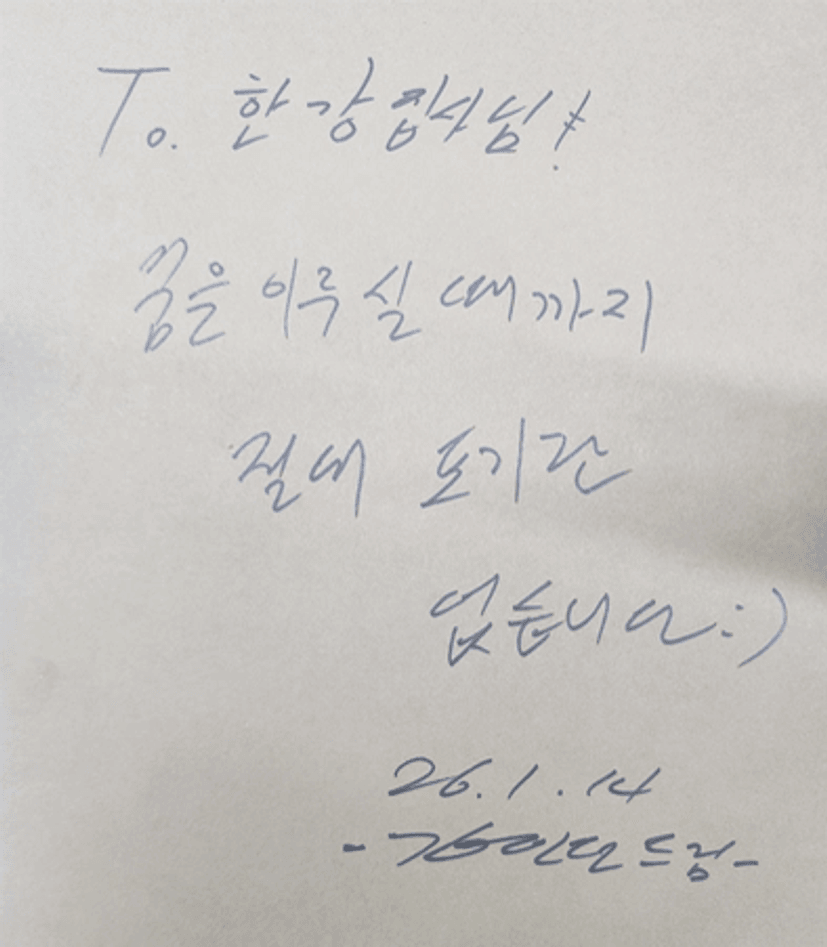 To. 한강집사님!
꿈을 이루실 때까지
절대 포기란
없습니다:)
26.1.14
드림-